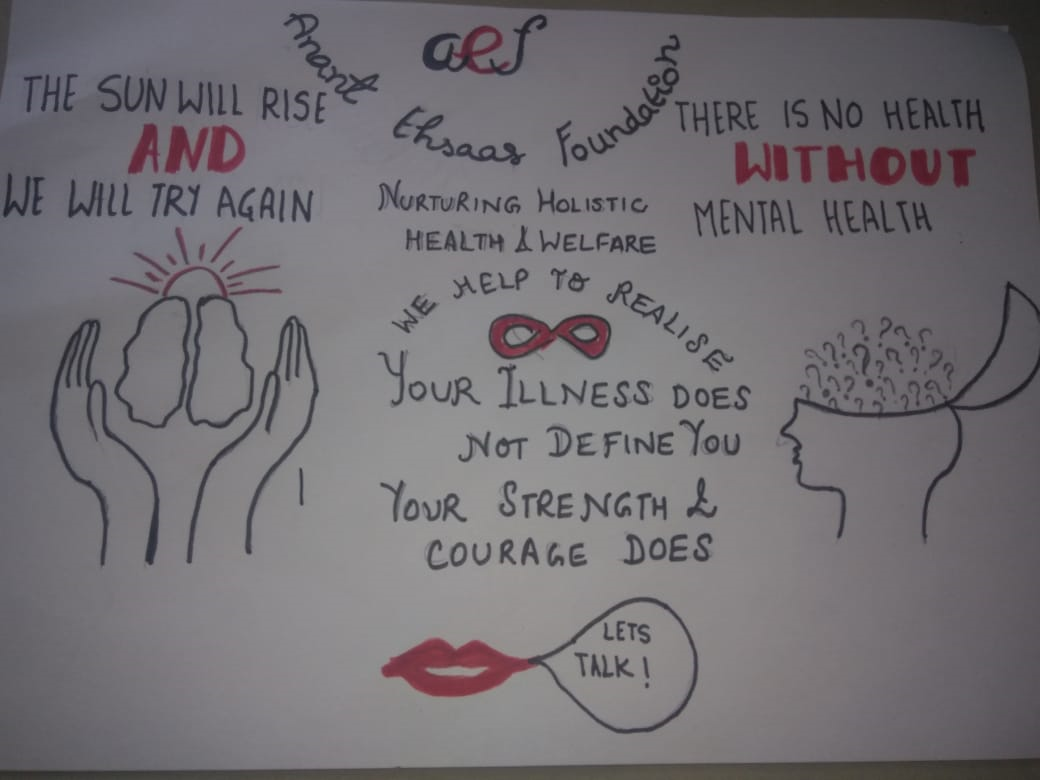 aef
Anant Ehsaas Foundation
THE SUN WILL RISE
AND
WE WILL TRY AGAIN
NURTURING HOLISTIC
HEALTH & WELFARE
THERE IS NO HEALTH
WITHOUT
MENTAL HEALTH
WE HELP TO REALISE
YOUR ILLNESS DOES
NOT DEFINE YOU
YOUR STRENGTH &
COURAGE DOES
? ? ? ? ? ? ? ? ? ? ? ? ? ? ? ? ? ? ? ?
LETS
TALK!